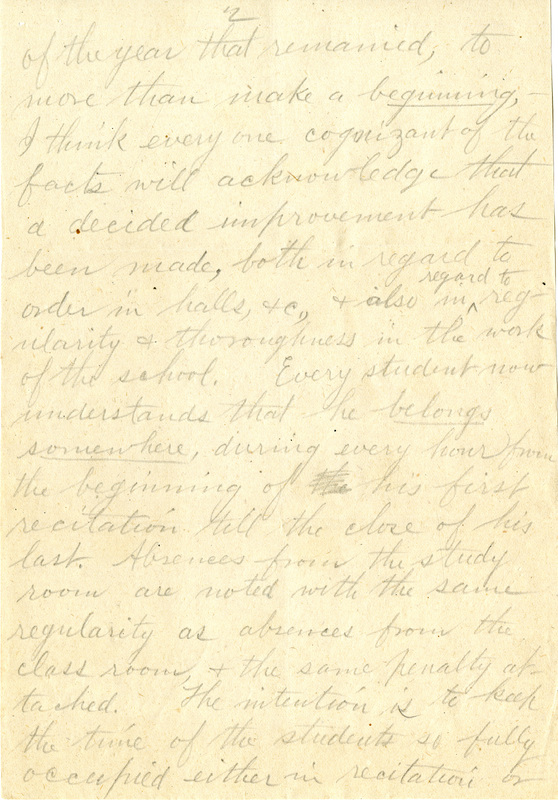 2
of the year that remained, to
more than make a beginning,-
I think every one cognizant of the
facts will acknowledge that
a decided improvement has
been made, both in regard to
order in halls, &c., & also in regard to reg-
ularity & thoroughness in the work
of the school. Every student now
understands that he belongs
somewhere, during every hour from
the beginning of the his first
recitation till the close of his
last. Absences from the study
room are noted with the same
regularity as absences from the
class room, & the same penalty at-
tached. The intention is to keep
the time of the students so fully
occupied either in recitation or